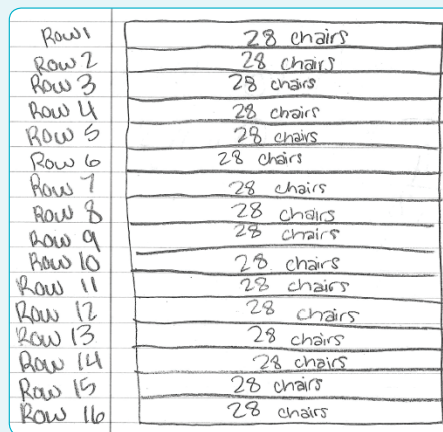 Row 1 28 chairs
Row 2 28 chairs
Row 3 28 chairs
Row 4 28 chairs
Row 5 28 chairs
Row 6 28 chairs
Row 7 28 chairs
Row 8 28 chairs
Row 9 28 chairs
Row 10 28 chairs
Row 11 28 chairs
Row 12 28 chairs
Row 13 28 chairs
Row 14 28 chairs
Row 15 28 chairs
Row 16 28 chairs